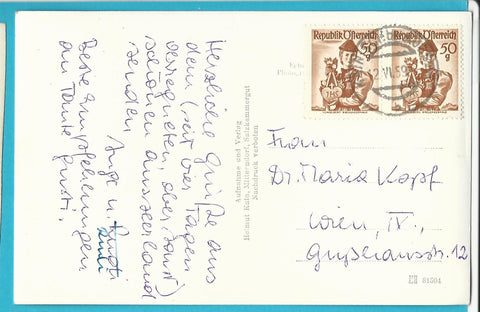 Herzliche Grüße aus
dem (seit vier Tagen
verregneten, aber sonst)
schönen Ausseerland
senden
Inge u. Rudi
Beste Empfehlungen
an Tante Gusti.
Aufnahme und Verlag
Helmut Kain, Mitterndorf, Salzkammergut
Nachdruck verboten
Republik Österreich
50
g
Republik Österreich
50
g
Frau
Dr. Maria Kopf
Wien, IV.,
Gußhausstr. 12
81504